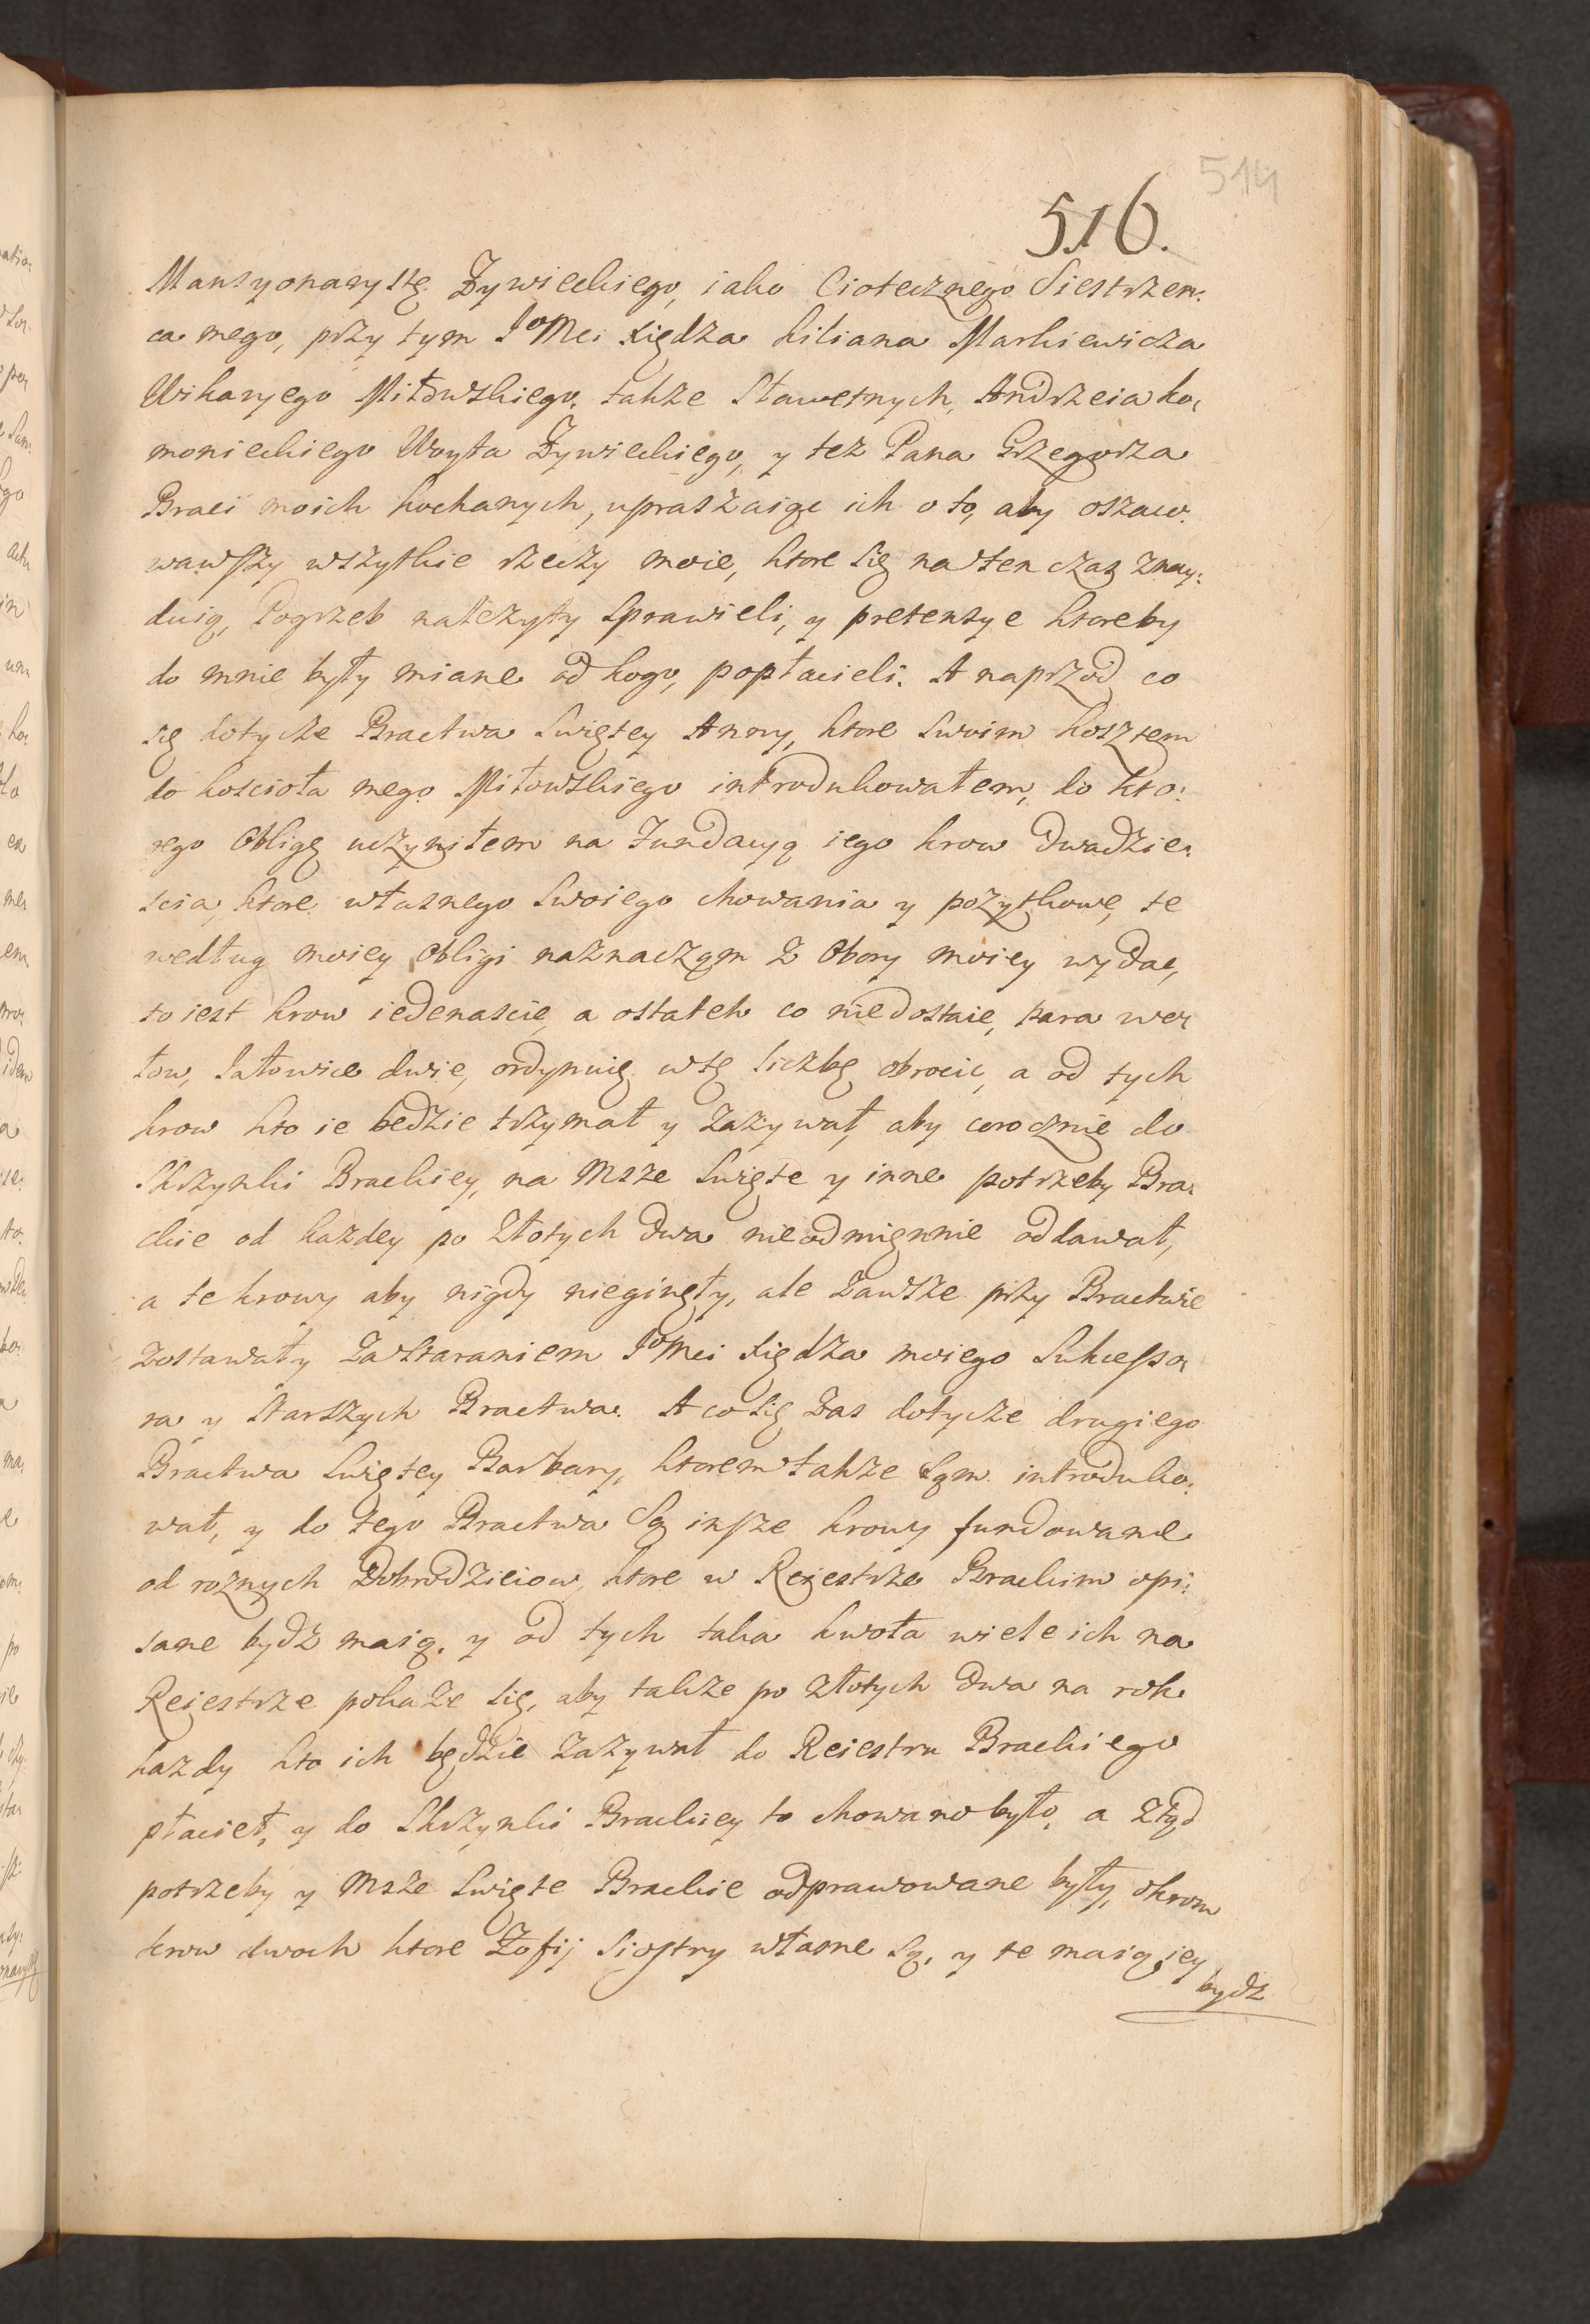 514
516.
Mansyonarystę Zywieckiego, iako Ciotecznego Siestrzen:
ca mego, przy tym JoMci Xiędza Kiliana Markiewicza
Wikaryego Miłowskiego. także Sławetnych, Andrzeia Ko:
monieckiego Woyta Zywieckiego, y też Pana Grzegorza
Braci moich kochanych, upraszaiąc ich o to, aby oszaco:
wawszy wszytkie rzeczy moie, ktore się na ten czas znay:
duią, Pogrzeb należyty sprawieli, y pretensye ktoreby
do mnie były miane od kogo, popłacieli. A naprzod co
się dotycze Bractwa Swiętey Anny, ktore swoim kosztem
do kościoła mego Miłowskiego introdukowałem, do kto:
rego Obligę uczyniłem na Fundacyą iego krow dwadzie:
scia, ktore własnego swoiego chowania y pożytkowe, te
według moiey Obligi naznaczam z Obory moiey wydać,
to iest krow iedenascie, a ostatek co niedostaie, para wo:
łow, Jałowice dwie, ordynuię w tę liczbę obrocić, a od tych
krow kto ie będzie trzymał y zażywał, aby corocznie do
Skrzynki Brackiey, na Msze Swięte y inne potrzeby Bra:
ckie od każdey po Złotych dwa nieodmiennie oddawał,
a te krowy aby nigdy nieginęły, ale zawsze przy Bractwie
zostawały za staraniem JoMci Xiędza moiego Sukcesso:
ra y Starszych Bractwa. A co się zas dotycze drugiego
Bractwa Swiętey Barbary, ktorem także sam introduko:
wał, y do tego Bractwa Są insze krowy fundowane
od rożnych Dobrodzieiow, ktore w Reiestrze Brackim opi:
sane bydź maią. y od tych taka kwota wiele ich na
Reiestrze pokaże się, aby także po złotych dwa na rok
każdy kto ich będzie zażywał do Reiestru Brackiego
płacieł, y do Skrzynki Brackiey to chowano było, a ztąd
potrzeby y Msze Swięte Brackie odprawowane były, okrom
krow dwoch ktore Zofij Siostry własne są, y te maią iey
bydź